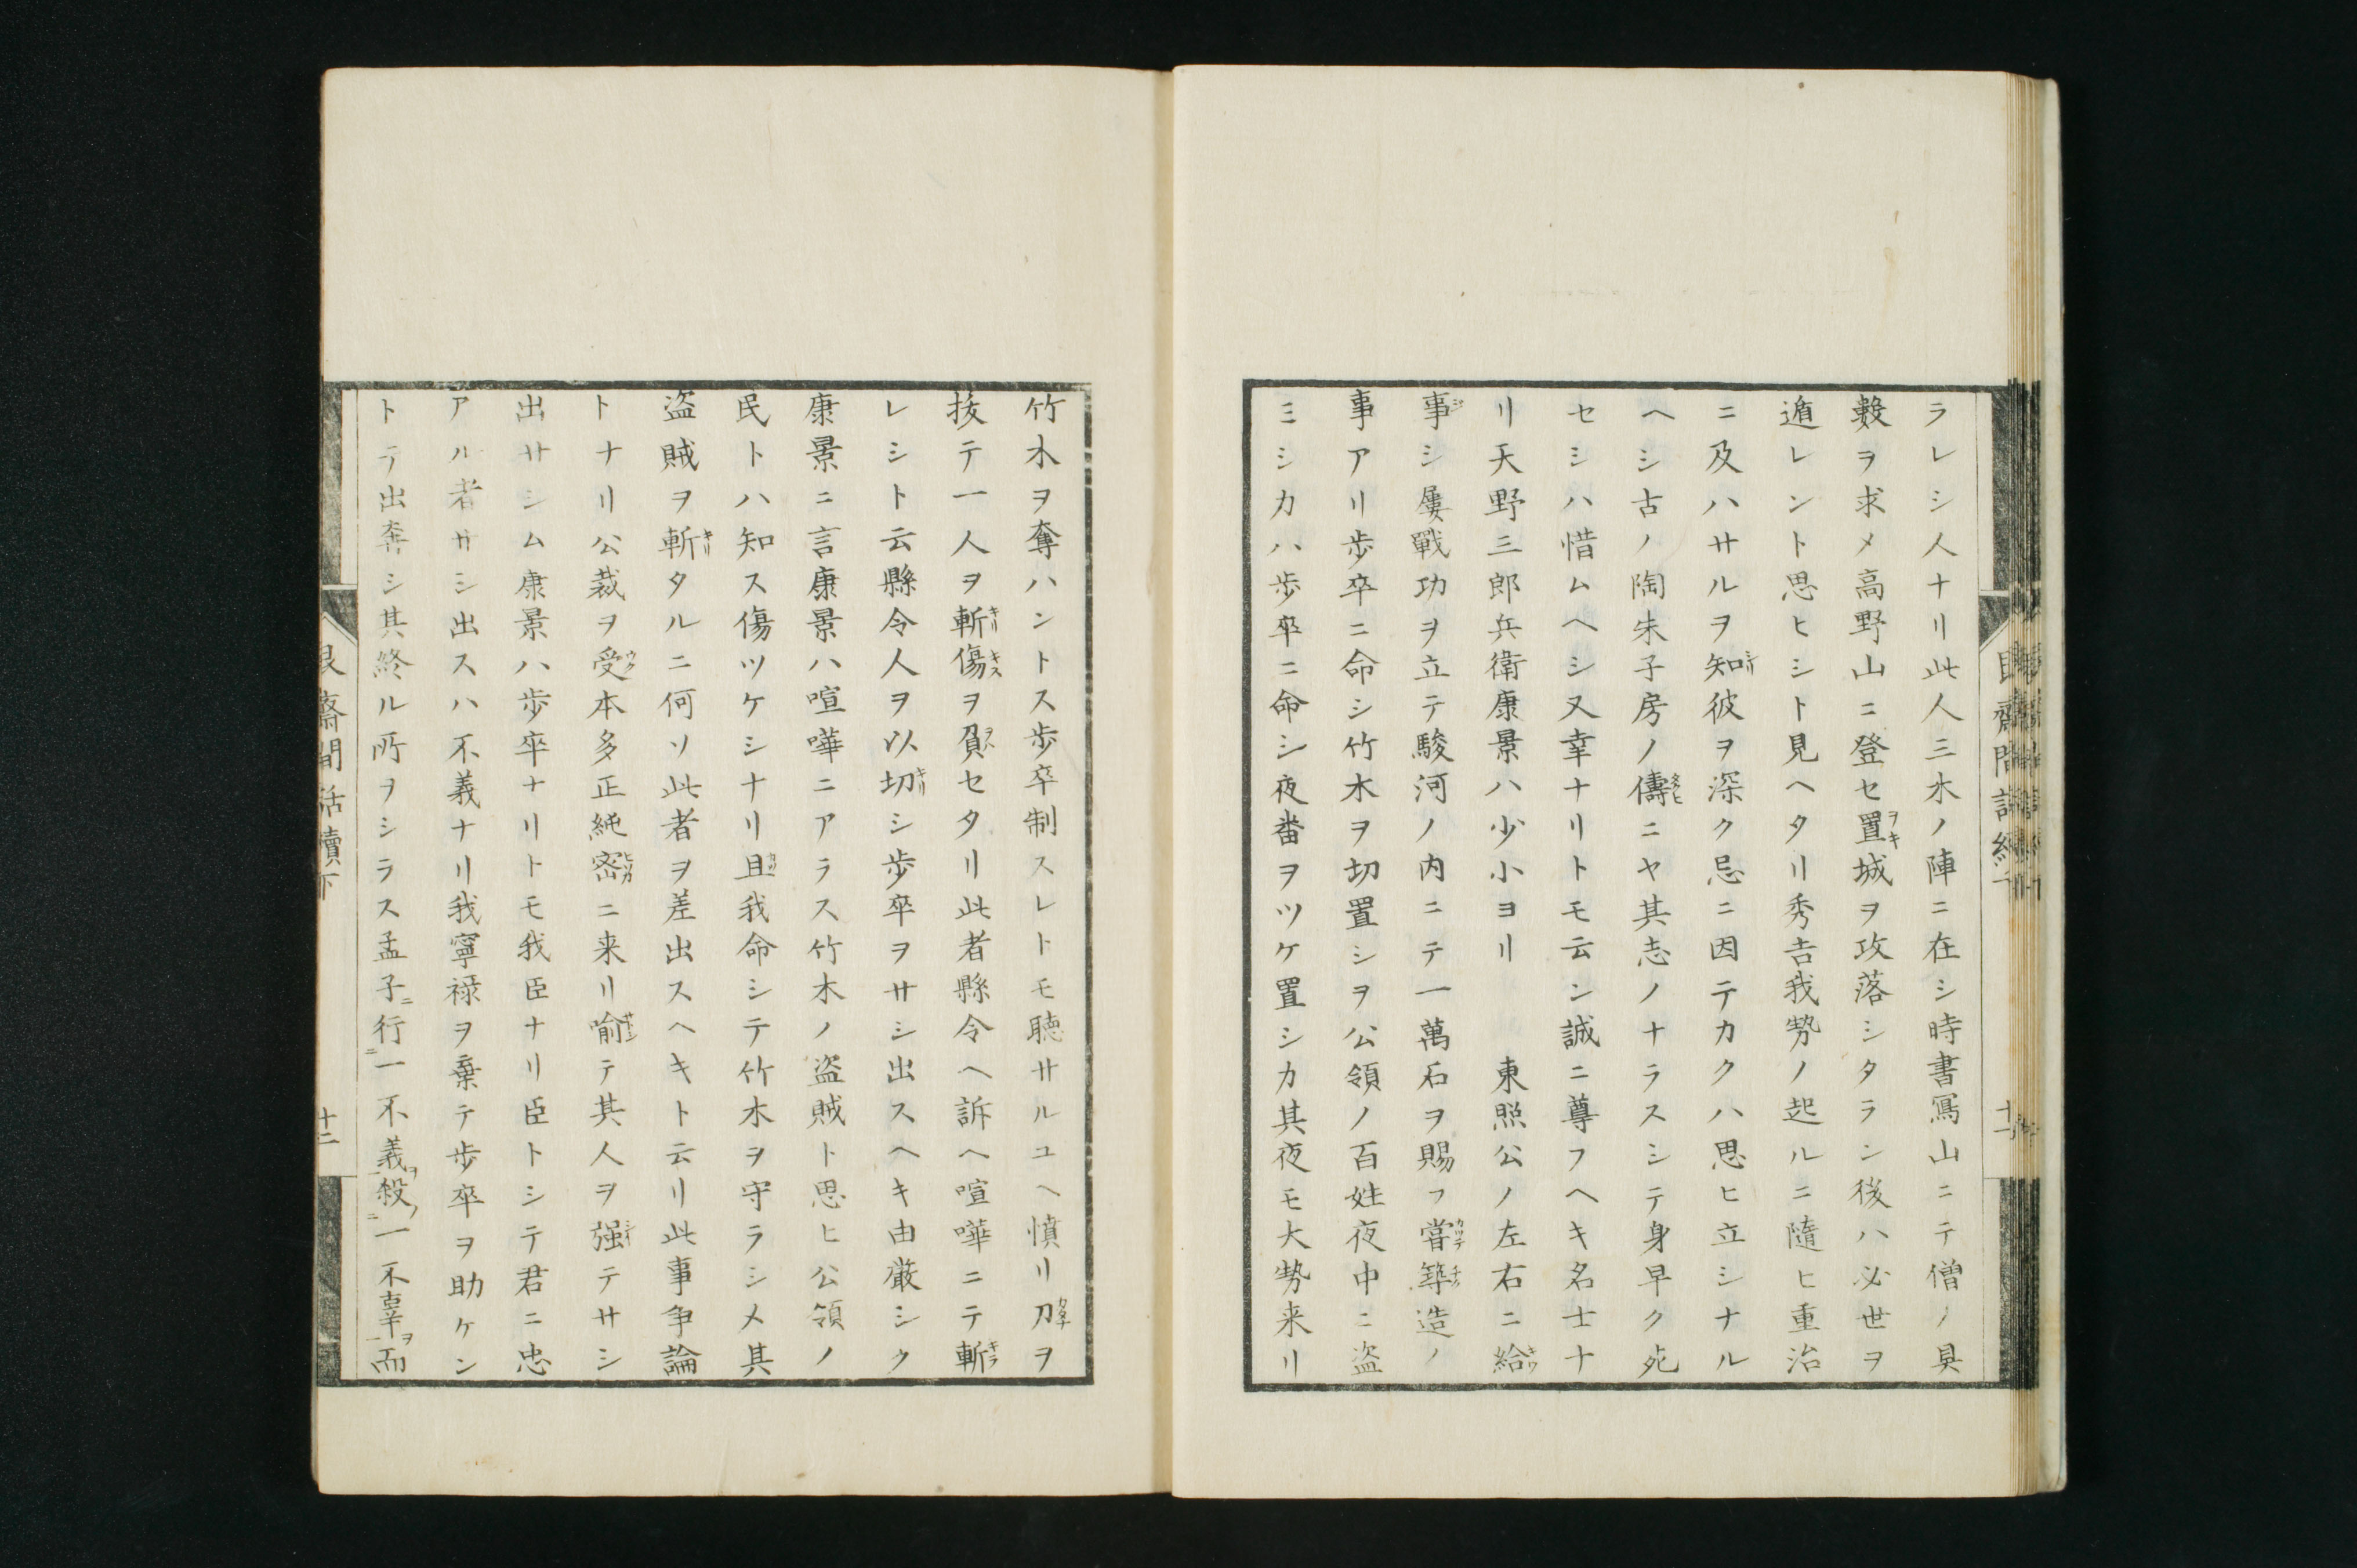 ラレシ人ナリ此人三木ノ陣ニ在シ時書寫山ニテ僧ノ具
數ヲ求メ高野山ニ登セ置城ヲ攻落シタラン後ハ必世ヲ
遁レント思ヒシト見ヘタリ秀吉我勢ノ起ルニ隨ヒ重治
ニ及ハサルヲ知彼ヲ深ク忌ニ因テカクハ思ヒ立シナル
ヘシ古ノ陶朱子房ノ儔ニヤ其志ノナラスシテ身早ク死
セシハ惜ムヘシ又幸ナリトモ云ン誠ニ尊フヘキ名士ナ
リ天野三郎兵衛康景ハ少小ヨリ　東照公ノ左右ニ給
事シ屢戰功ヲ立テ駿河ノ内ニテ一萬石ヲ賜フ嘗築造ノ
事アリ歩卒ニ命シ竹木ヲ切置シヲ公領ノ百姓夜中ニ盗
ミシカハ歩卒ニ命シ夜番ヲツケ置シカ其夜モ大勢来リ
竹木ヲ奪ハントス歩卒制スレトモ聴サルユヘ憤リ刀ヲ
抜テ一人ヲ斬傷ヲ負セタリ此者縣令ヘ訴ヘ喧嘩ニテ斬
レシト云縣令人ヲ以切シ歩卒ヲサシ出スヘキ由厳シク
康景ニ言康景ハ喧嘩ニアラス竹木ノ盗賊ト思ヒ公領ノ
民トハ知ス傷ツケシナリ且我命シテ竹木ヲ守ラシメ其
盗賊ヲ斬タルニ何ソ此者ヲ差出スヘキト云リ此事争論
トナリ公裁ヲ受本多正純密ニ来リ喩テ其人ヲ强テサシ
出サシム康景ハ歩卒ナリトモ我臣ナリ臣トシテ君ニ忠
アル者サシ出スハ不義ナリ我寧禄ヲ棄テ歩卒ヲ助ケン
トテ出奔シ其終ル所ヲシラス孟子ニ行ニ一不義ヲ殺ノニ一不辜ヲ而
艮齋間話續下
十二